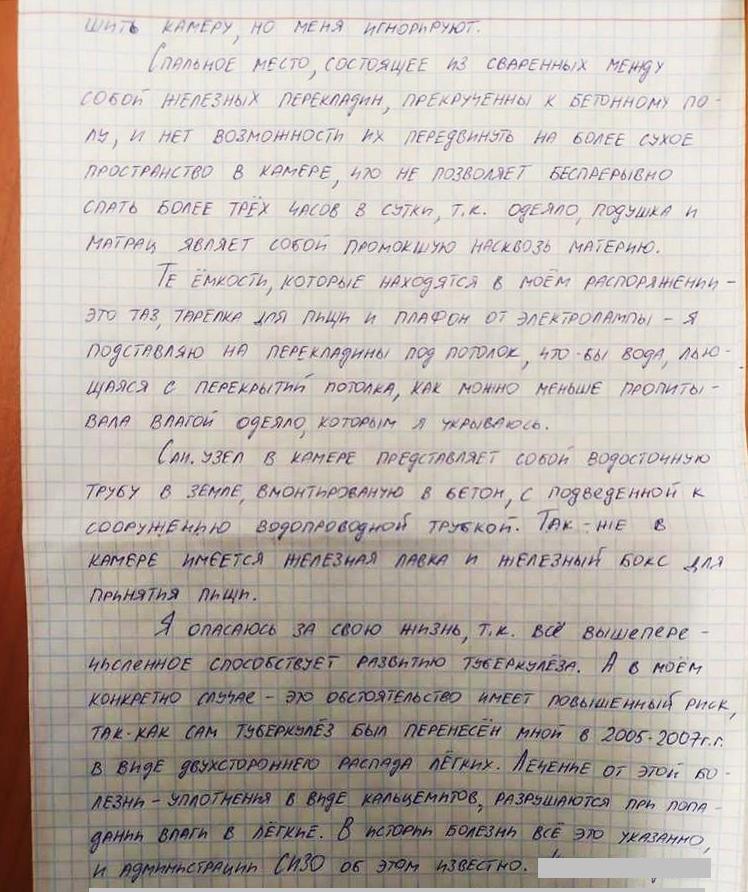 шить камеру, но меня игнорируют.
Спальное место, состоящее из сваренных между
собой железных перекладин, прекрученны к бетонному по-
лу, и нет возможности их передвинуть на более сухое
пространство в камере, что не позволяет беспрерывно
спать более трёх часов в сутки, т.к. одеяло, подушка и
матрац являет собой промокшую насквозь материю.
Те ёмкости, которые находятся в моём распоряжении -
это таз, тарелка для пищи и плафон от электролампы - я
подставляю на перекладины под потолок, что-бы вода, лью-
щаяся с перекрытий потолка, как можно меньше пропиты-
вала влагой одеяло, которым я укрываюсь.
Сан.узел в камере представляет собой водосточную
трубу в земле, вмонтированую в бетон, с подведенной к
сооружению водопроводной трубкой. Так-же в
камере имеется железная лавка и железный бокс для
принятия пищи.
Я опасаюсь за свою жизнь, т.к. всё вышепере-
численное способствует развитию туберкулёза. А в моём
конкретно случае - это обстоятельство имеет повышенный риск,
так-как сам туберкулёз был перенесён мной в 2005-2007г.г.
в виде двухстороннего распада лёгких. Лечение от этой бо-
лезни - уплотнения в виде кальцемитов, разрушаются при попа-
дании влаги в лёгкие. В истории болезни всё это указанно,
и администрации СИЗО об этом известно.